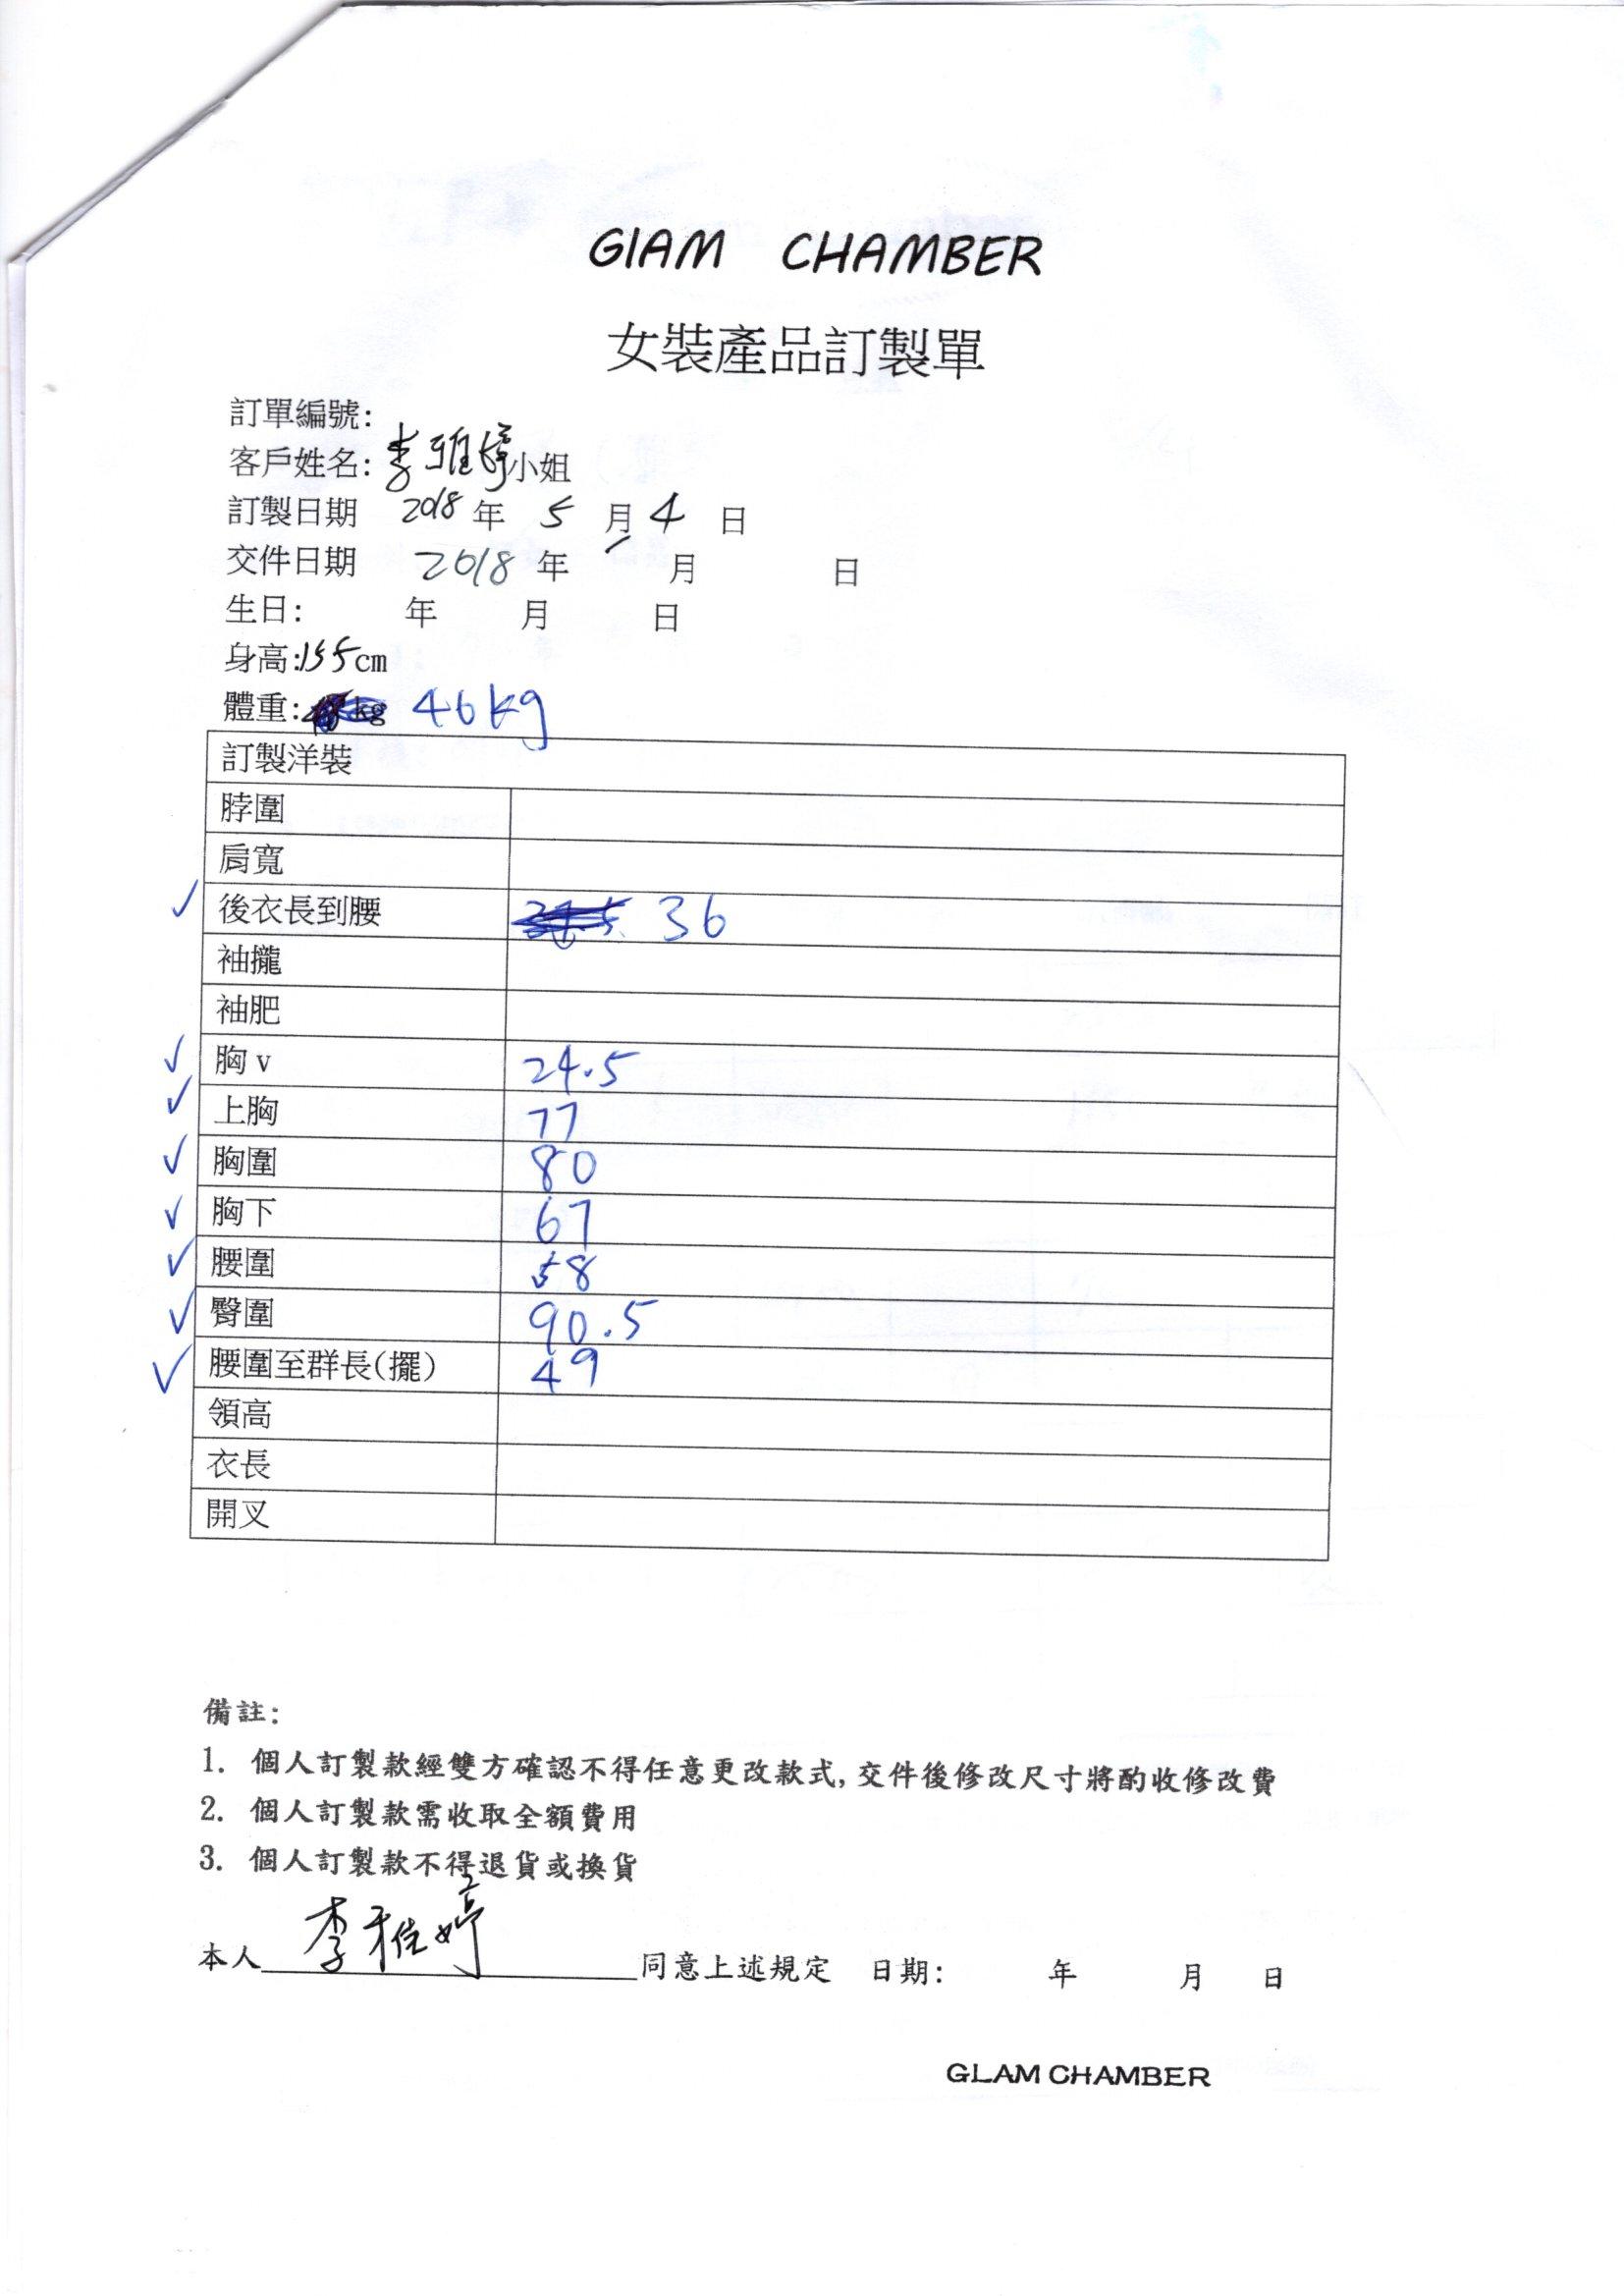 GIAM CHAMBER
女裝產品訂製單
訂單編號:
客戶姓名: 李雅婷小姐
訂製日期 2018 年 5 月 4 日
交件日期 2018 年 月 日
生日: 年 月 日
身高:155cm
體重: kg 46kg
訂製洋裝
脖圍
肩寬
後衣長到腰 36
袖攏
袖肥
胸v 24.5
上胸 77
胸圍 80
胸下 67
腰圍 58
臀圍 90.5
腰圍至群長(擺) 49
領高
衣長
開叉
備註:
1. 個人訂製款經雙方確認不得任意更改款式,交件後修改尺寸將酌收修改費
2. 個人訂製款需收取全額費用
3. 個人訂製款不得退貨或換貨
本人 李雅婷 同意上述規定 日期: 年 月 日
GLAM CHAMBER